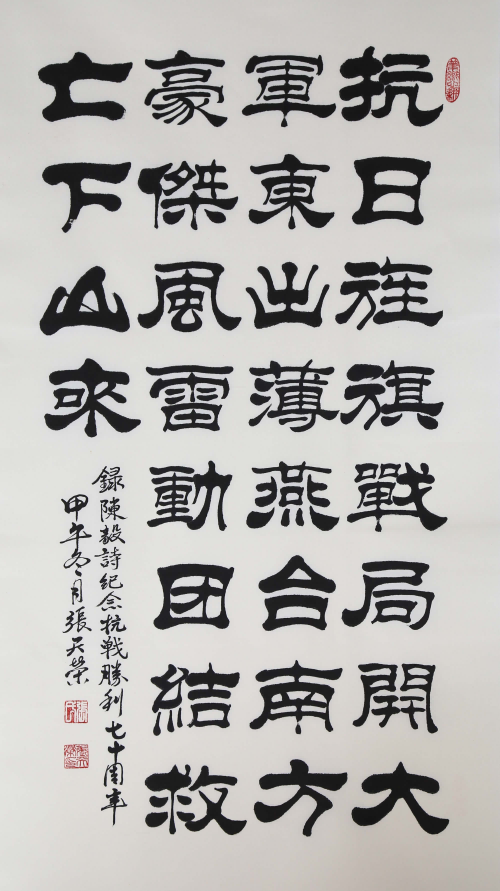 抗日旌旗戰局開大
軍東出薄燕台南方
豪傑風雷動团結救
亡下山來
録陳毅詩紀念抗戦勝利七十周年
甲午冬月張天榮